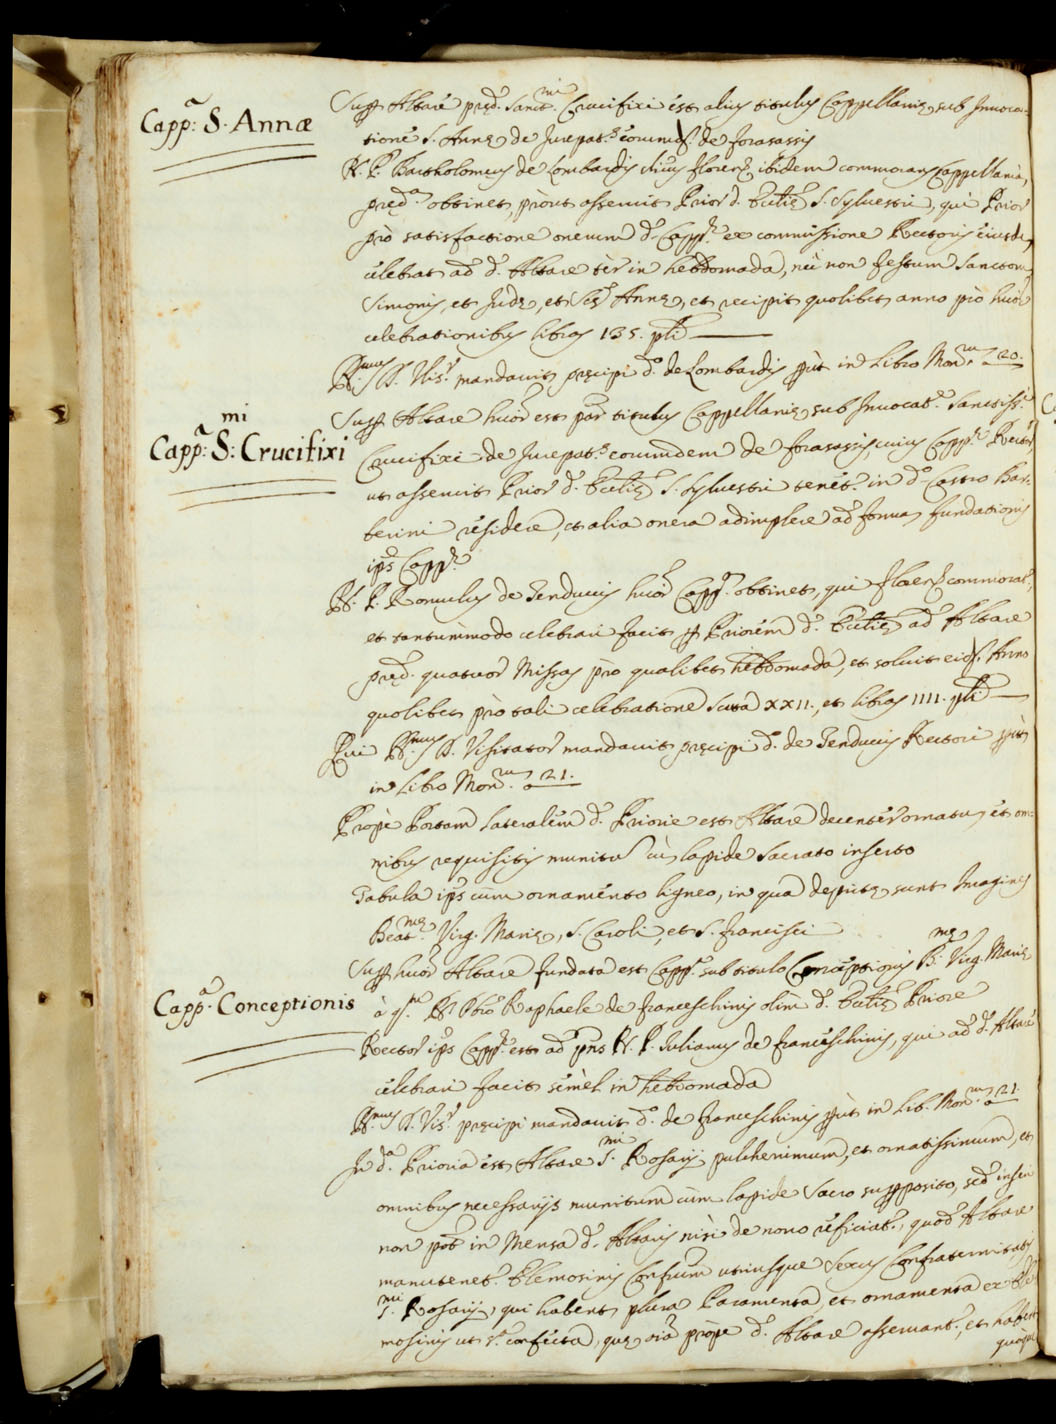 Capp.ª S. Annæ
Supp Altare pręd. Sanct.mi Crucifixi est alius titulus Cappellanię sub Invoca-
tione S. Annę de Jurepat.s eorumd. de forasassis
R. P. Bartholomeus de Lombardis Civis floren. ibidem commorans Cappellania
pręd.ª obtinet, pròut asseruit Prior d. Eccłię S. Sylvestri, qui Prior
prò satisfactione onerum d.ę Capp.ę ex commissione Rectoris eiusdē
celebrat ad d. Altare tèr in hebdomada, nec non festum Sanctorū
Simonis, et Judę, et Sce Annę, et recipit quolibet anno pro huiō
celebrationibus libras 135. płi
R.mus D. Vis.r mandavit pręcipi d.o de Lombardis pūt in Libro Mon.m a 20.
Capp.ª S.mi Crucifixi
Supp Altare huiō est par titulus Cappellanię sub Invocat.e Sanctiss.i
Crucifixi de Jurepat.s eorumdem de forasassis, cuius Capp.ę Rector,
ut asseruit Prior d. Eccłię S. Sylvestri tenet.r in d.o Castro Bar-
berini residere, et alia onera adimplere ad forma fundationis
ips Capp.ę
R. P. Romulus de Benduciis huiō Capp.ª obtinet, qui floren. commorat.r
et tantummodo celebrari facit p Priorem d. Eccłię ad Altare
pręd. quatuor Missas prò qualibet hebdomada, et solvit eid. Anno
quolibet prò tali celebratione scuta XXII., et libras IIII. płi
Qui R.mus D. Visitator mandavit pręcipi d.o de Benduciis Rectori pūt
in Libro Mon.m a 21.
Prope Portam lateralem d. Priorię est Altare decenter ornatū, et om-
nibus requisitis munitū cū lapide Sacrato inserto
Tabula ips cum ornamento ligneo, in qua depictę sunt Imagines
Beat.mę Virg. Marię, S. Caroli, et S. francisci
Capp.ª Conceptionis
Supp huiō Altare fundata est Capp.ª sub titulo Conceptionis B.mę Virg. Marię
à q. R. Pbro Raphaele de franceschinis olim d. Eccłię Priore
Rector ips Capp.ę est ad pns R. P. Iulianus de franceschinis, qui ad d. Altare
celebrari facit semèl in hebdomada
R.mus D. Vis.r pręcipi mandavit d.o de franceschinis pūt in Lib. Mon.m a 21.
In d.ª Prioria est Altare S.mi Rosarij pulcherrimum, et ornatissimum, et
omnibus necessarijs munitum cùm lapide Sacro supposito, sed inseri
non pot in Mensa d. Altaris nisi de novo reficiat.r, quod Altare
manutenet.r Elemosinis Confrum utriusque Sexus Confraternitatis
S.mi Rosarij, qui habent plura Paramenta, et ornamenta ex Ele-
mosinis ut s.ª confecta, quę oia pròpe d. Altare asservant.r, et habent
quoque